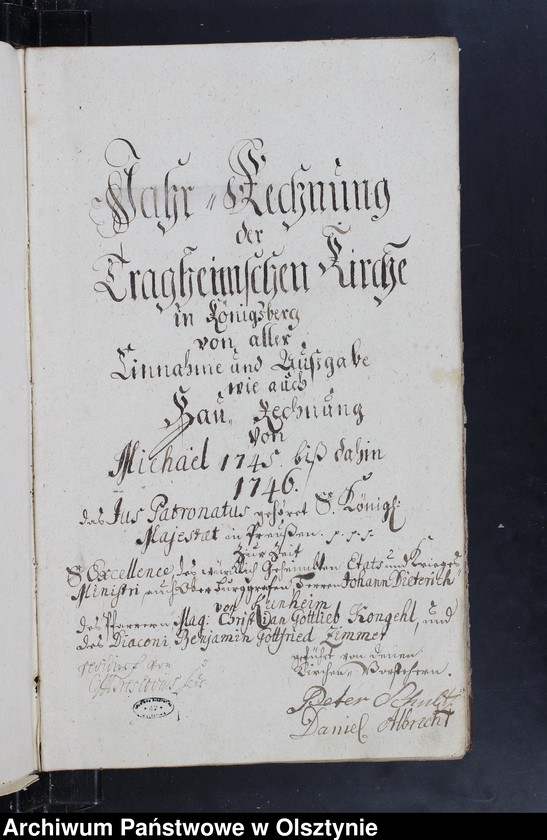 Jahr„Rechnung
der
Tragheimischen Kirche
in Königsberg
von aller
Einnahme und Außgabe
wie auch
Bau„Rechnung
von
Michael 1745 biß dahin
1746.
das Jus Patronatus gehöret Sr. Königl:
Majestat in Preußen. p. p. p.
Zur Zeit
Sr Excellence des würcklich Geheimbten Etats und Krieges
Ministri, auch Ober Burggrafen Herren Johann Dieterich
von Kunheim
des Pfarrern Mag: Christian Gottlieb Kongehl, und
des Diaconi Benjamin Gottfried Zimmer
geführt von denen
Kirchen„Vorstehern.
revidirt von
Peter Schultz
Daniel Albrecht
Archiwum Państwowe w Olsztynie